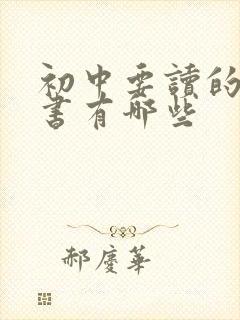 初中要讀的
書有哪些
郝慶華